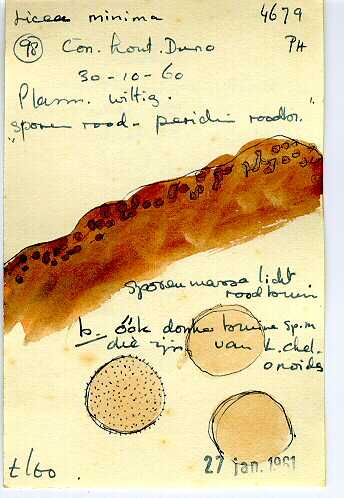 Licea minima 4679
98 Con. hout. Duno PH
30-10-60
Plasm. wittig.
"sporen rood - peridiën roodbr."
sporenmassa licht
roodbruin
b. óók donker bruine sp.m
die zijn van L. chel-
onoides
t/60
27 jan. 1961